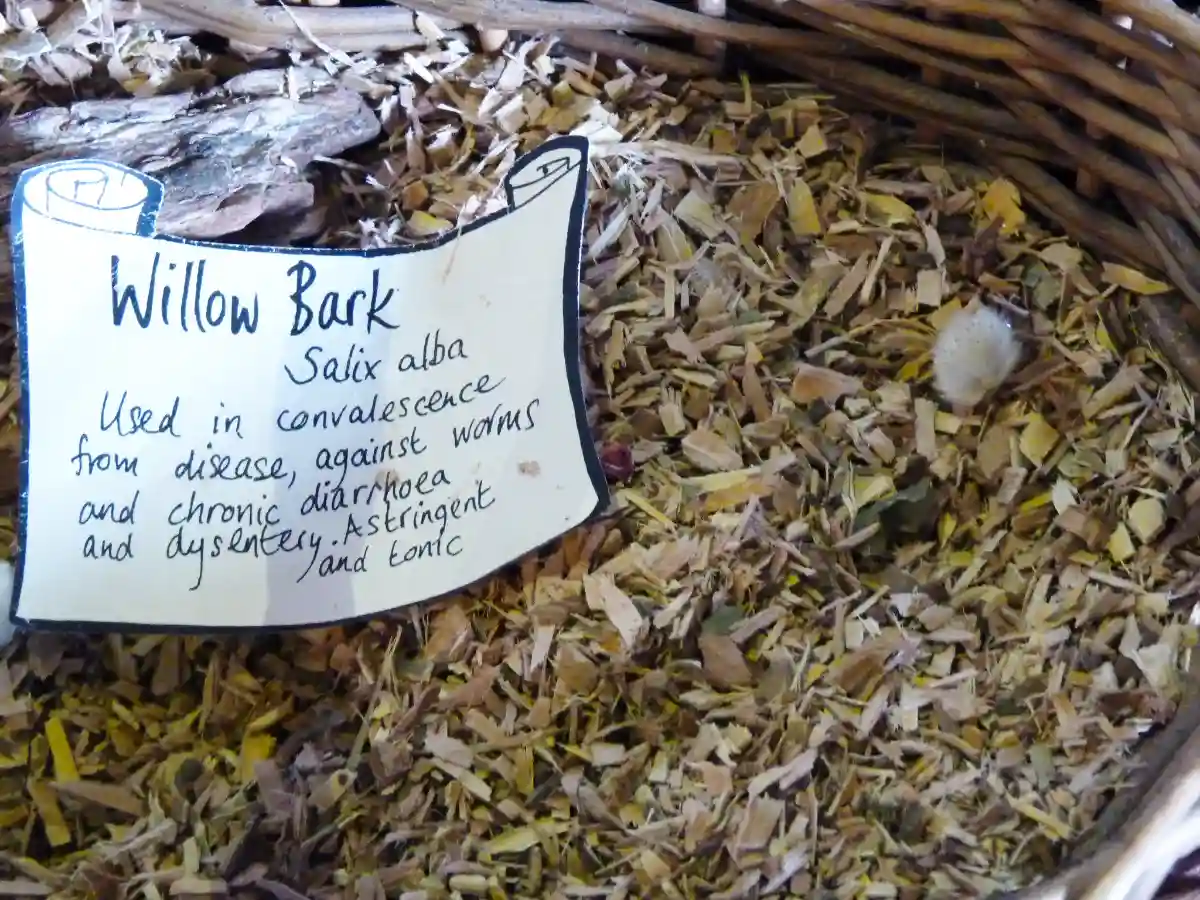 Willow Bark
Salix alba
Used in convalescence
from disease, against worms
and chronic diarrhoea
and dysentery. Astringent
and tonic